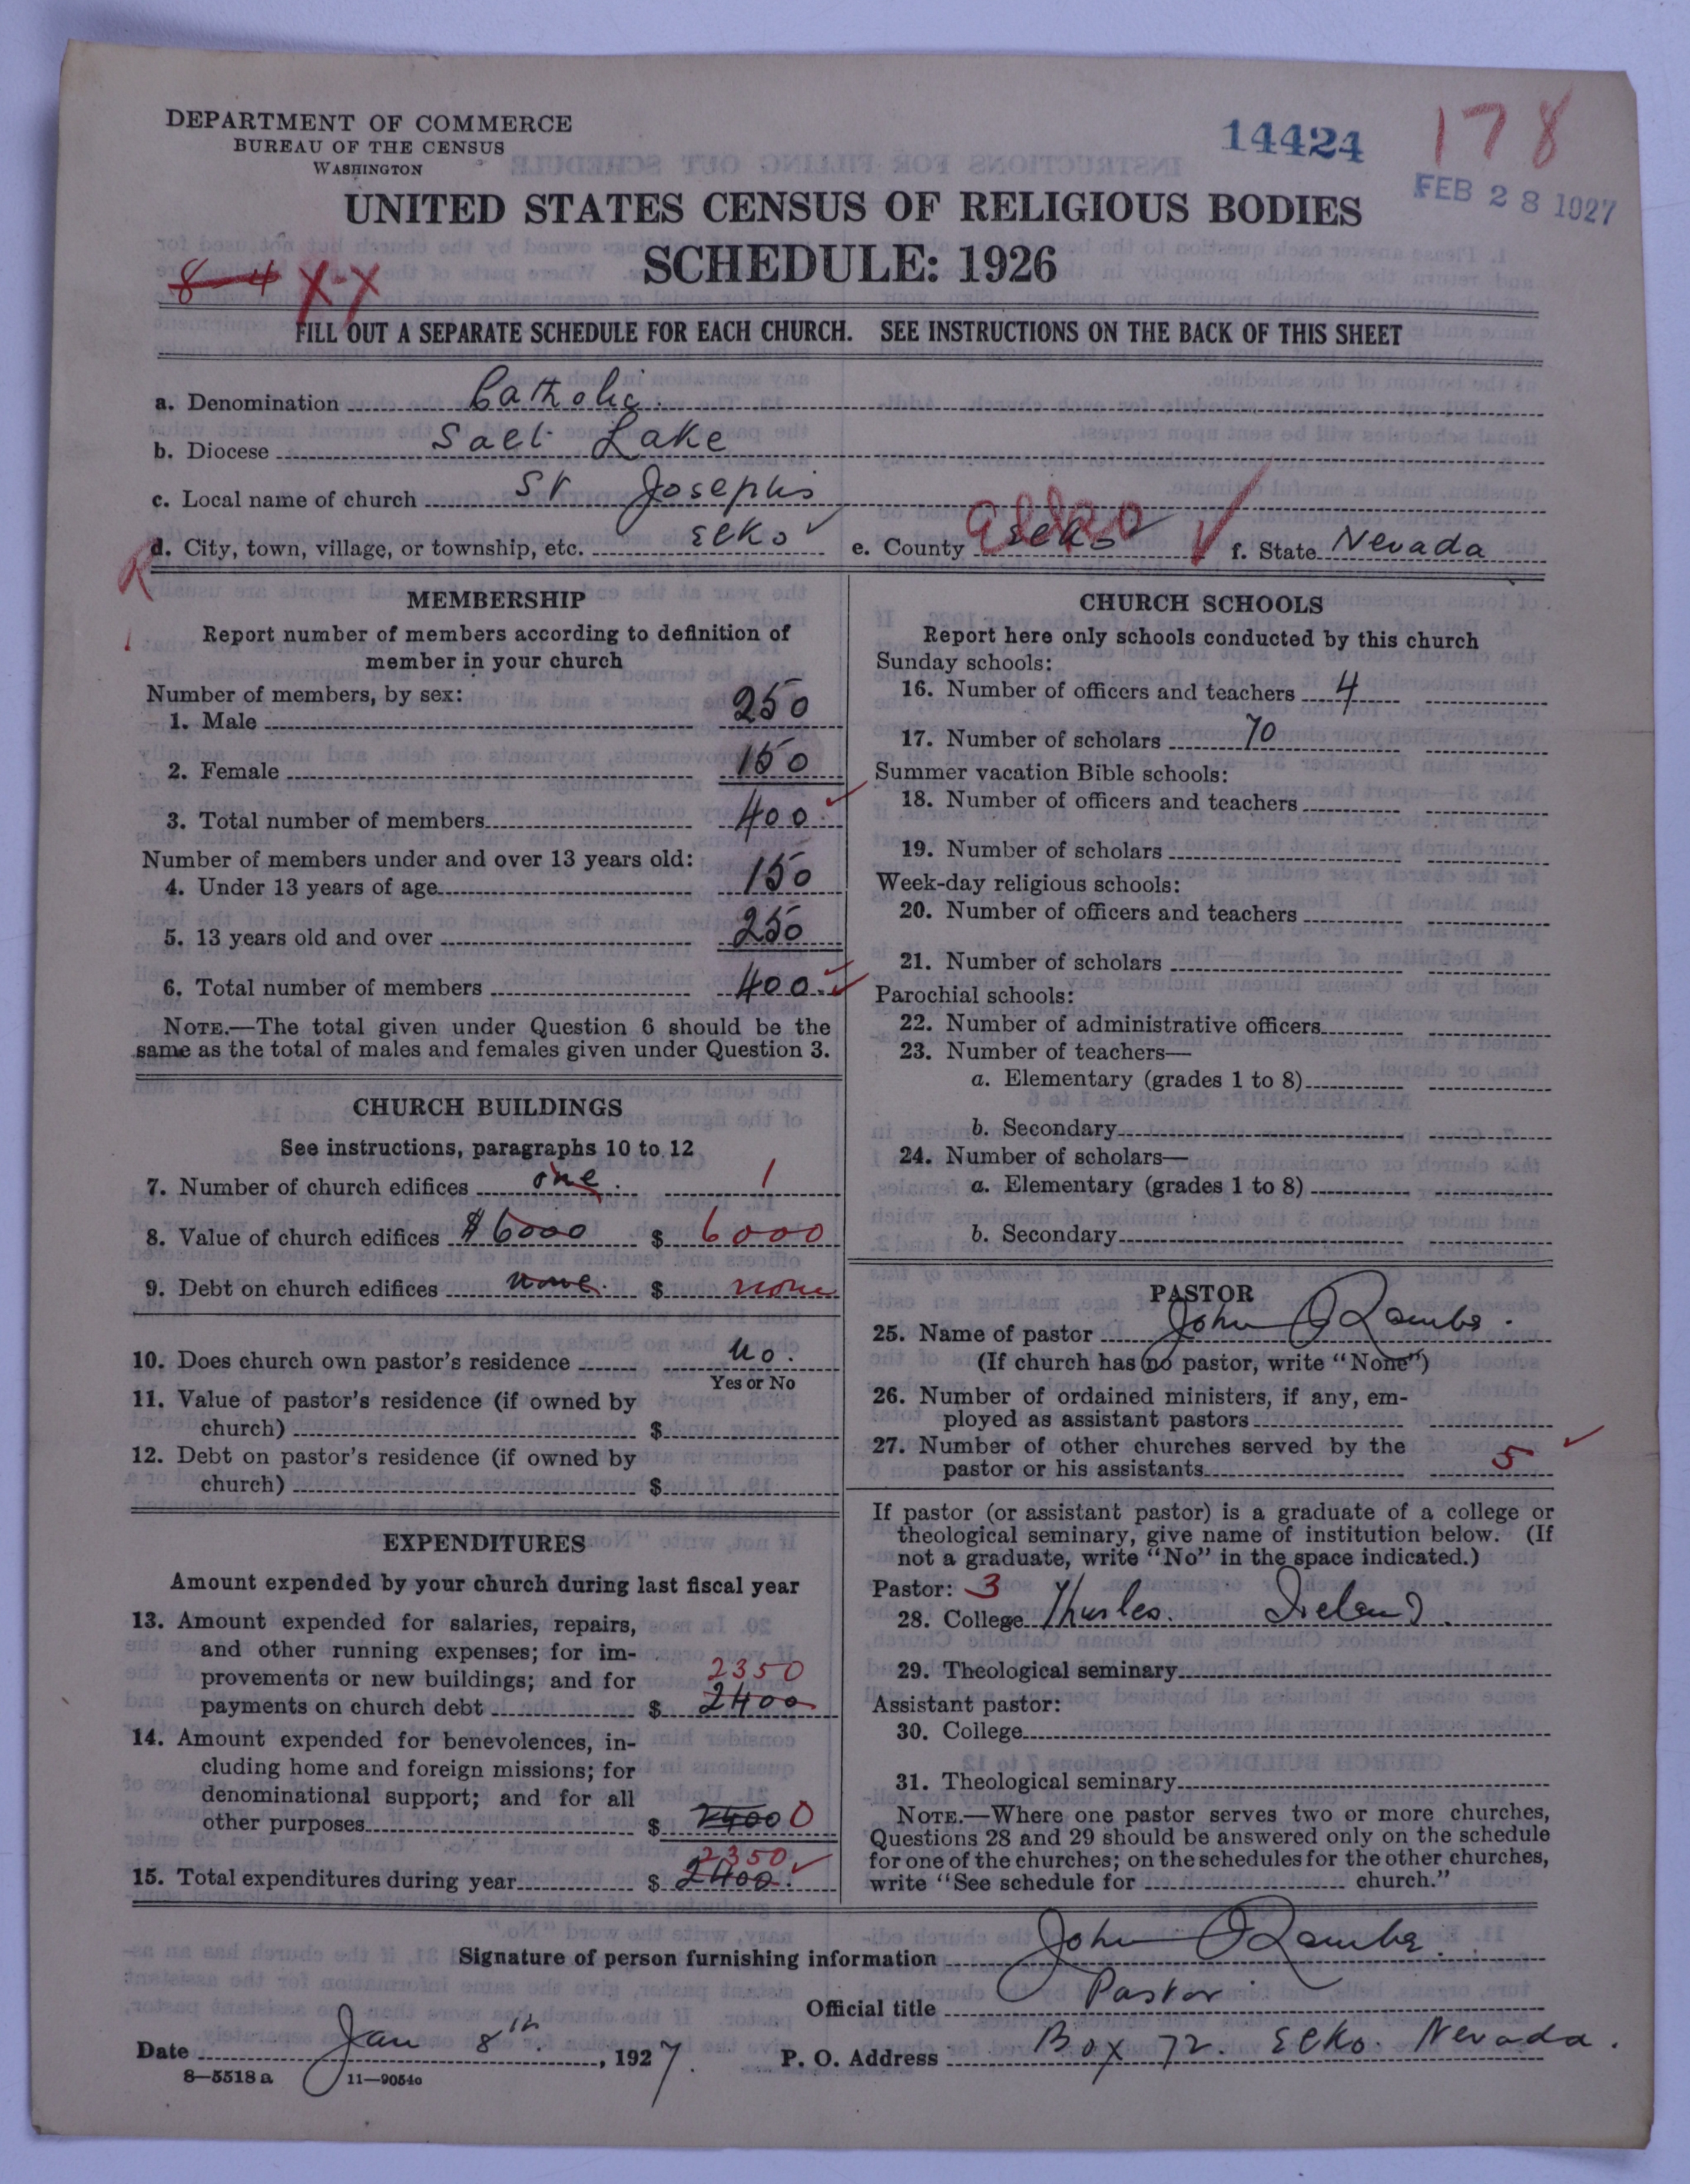 DEPARTMENT OF COMMERCE
BUREAU OF THE CENSUS
WASHINGTON
14424
178
FEB 28 1927
UNITED STATES CENSUS OF RELIGIOUS BODIES
SCHEDULE: 1926
8-4 X-X
FILL OUT A SEPARATE SCHEDULE FOR EACH CHURCH. SEE INSTRUCTIONS ON THE BACK OF THIS SHEET
a. Denomination Catholic.
b. Diocese Salt Lake
c. Local name of church St Josephs
d. City, town, village, or township, etc. Elko ✓ e. County Elko Elko ✓ f. State Nevada
R
MEMBERSHIP
Report number of members according to definition of
member in your church
Number of members, by sex:
1. Male 250
2. Female 150
3. Total number of members 400 ✓
Number of members under and over 13 years old:
4. Under 13 years of age 150
5. 13 years old and over 250
6. Total number of members 400 ✓✓
NOTE.—The total given under Question 6 should be the
same as the total of males and females given under Question 3.
CHURCH BUILDINGS
See instructions, paragraphs 10 to 12
7. Number of church edifices one. 1
8. Value of church edifices $6000 $ 6000
9. Debt on church edifices none. $ none
10. Does church own pastor's residence no.
Yes or No
11. Value of pastor's residence (if owned by
church) $
12. Debt on pastor's residence (if owned by
church) $
EXPENDITURES
Amount expended by your church during last fiscal year
13. Amount expended for salaries, repairs,
and other running expenses; for im-
provements or new buildings; and for 2350
payments on church debt $ 2400
14. Amount expended for benevolences, in-
cluding home and foreign missions; for
denominational support; and for all
other purposes $ 2400 0
2350
15. Total expenditures during year $ 2400. ✓
CHURCH SCHOOLS
Report here only schools conducted by this church
Sunday schools:
16. Number of officers and teachers 4
17. Number of scholars 70
Summer vacation Bible schools:
18. Number of officers and teachers
19. Number of scholars
Week-day religious schools:
20. Number of officers and teachers
21. Number of scholars
Parochial schools:
22. Number of administrative officers
23. Number of teachers—
a. Elementary (grades 1 to 8)
b. Secondary
24. Number of scholars—
a. Elementary (grades 1 to 8)
b. Secondary
PASTOR
25. Name of pastor John
(If church has no pastor, write "None")
26. Number of ordained ministers, if any, em-
ployed as assistant pastors
27. Number of other churches served by the
pastor or his assistants 5 ✓
If pastor (or assistant pastor) is a graduate of a college or
theological seminary, give name of institution below. (If
not a graduate, write "No" in the space indicated.)
Pastor: 3
28. College Thurles. Ireland
29. Theological seminary
Assistant pastor:
30. College
31. Theological seminary
NOTE.—Where one pastor serves two or more churches,
Questions 28 and 29 should be answered only on the schedule
for one of the churches; on the schedules for the other churches,
write "See schedule for church."
Signature of person furnishing information John
Official title Pastor
Date Jan 8th, 1927. P. O. Address Box 72. Elko. Nevada.
8—5518 a 11—9054o